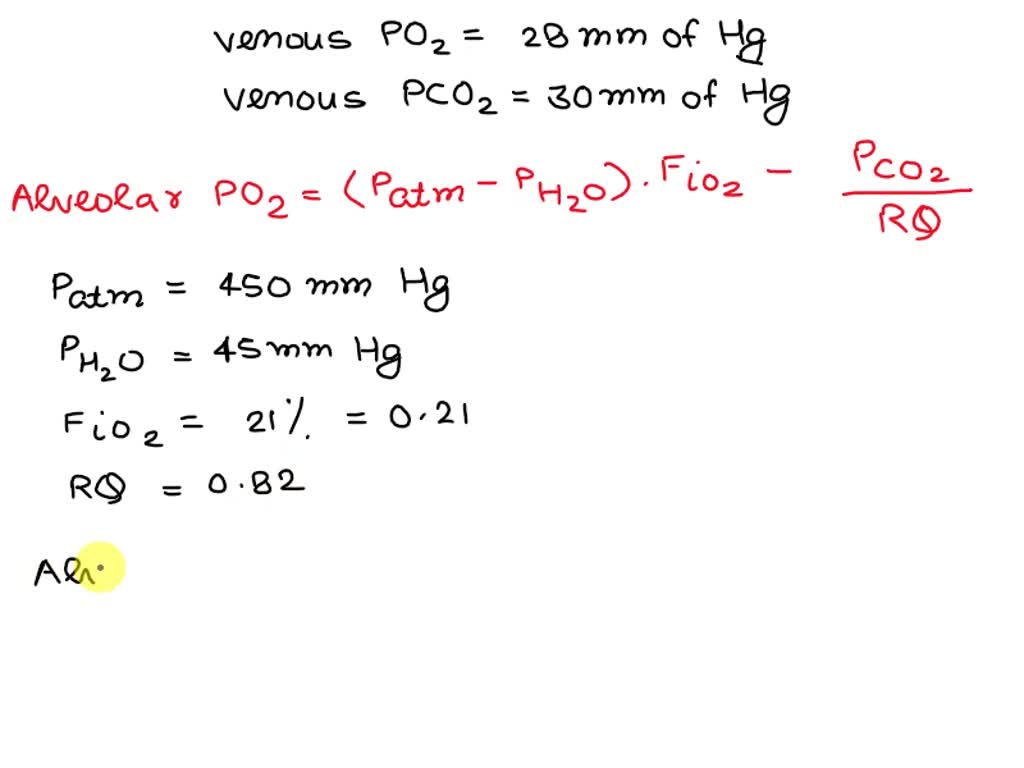 venous PO₂ = 28 mm of Hg
venous PCO₂ = 30 mm of Hg
Alveolar PO₂ = (Patm - PH₂O) . FiO₂ - PCO₂ / RQ
Patm = 450 mm Hg
PH₂O = 45 mm Hg
FiO₂ = 21% = 0.21
RQ = 0.82